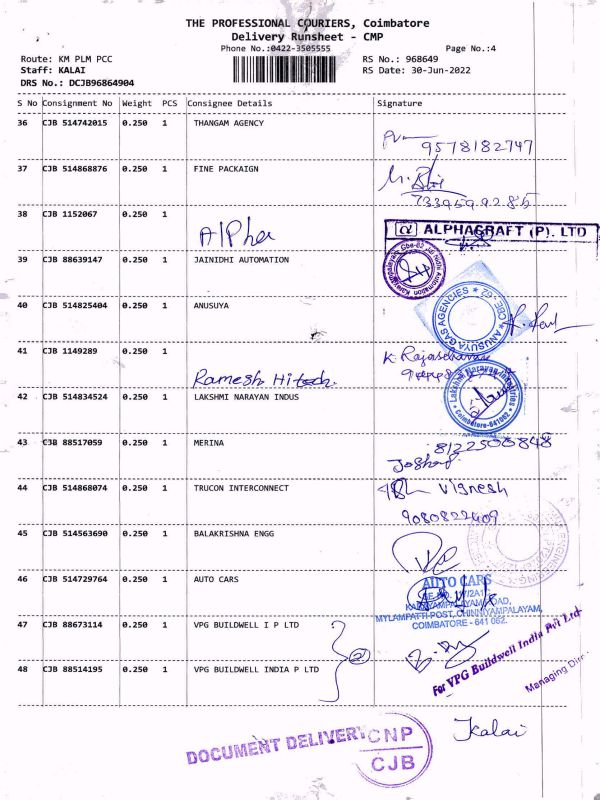 THE PROFESSIONAL COURIERS, Coimbatore
Delivery Runsheet - CMP
Phone No.:0422-3505555
Page No.:4
Route: KM PLM PCC
RS No.: 968649
Staff: KALAI
RS Date: 30-Jun-2022
DRS No.: DCJB96864904
S No Consignment No Weight PCS Consignee Details Signature
36 CJB 514742015 0.250 1 THANGAM AGENCY
9578182747
37 CJB 514868876 0.250 1 FINE PACKAIGN
7339599285
38 CJB 1152067 0.250 1
Alpha
ALPHAGRAFT (P). LTD
39 CJB 88639147 0.250 1 JAINIDHI AUTOMATION
40 CJB 514825404 0.250 1 ANUSUYA
ANUSUYA GAS AGENCIES CBE-62
41 CJB 1149289 0.250 1
Ramesh Hitech.
42 CJB 514834524 0.250 1 LAKSHMI NARAYAN INDUS
Lakshmi Narayan Industries
Coimbatore-641062
43 CJB 88517059 0.250 1 MERINA
8122500848
44 CJB 514868074 0.250 1 TRUCON INTERCONNECT
Vignesh
9080822409
45 CJB 514563690 0.250 1 BALAKRISHNA ENGG
46 CJB 514729764 0.250 1 AUTO CARS
AUTO CARS
MYLAMPATTI POST, CHINNIYAMPALAYAM,
COIMBATORE - 641 062.
47 CJB 88673114 0.250 1 VPG BUILDWELL I P LTD
2
48 CJB 88514195 0.250 1 VPG BUILDWELL INDIA P LTD
For VPG Buildwell India Pvt Ltd
Managing
Kalai
DOCUMENT DELIVERY
CNP
CJB